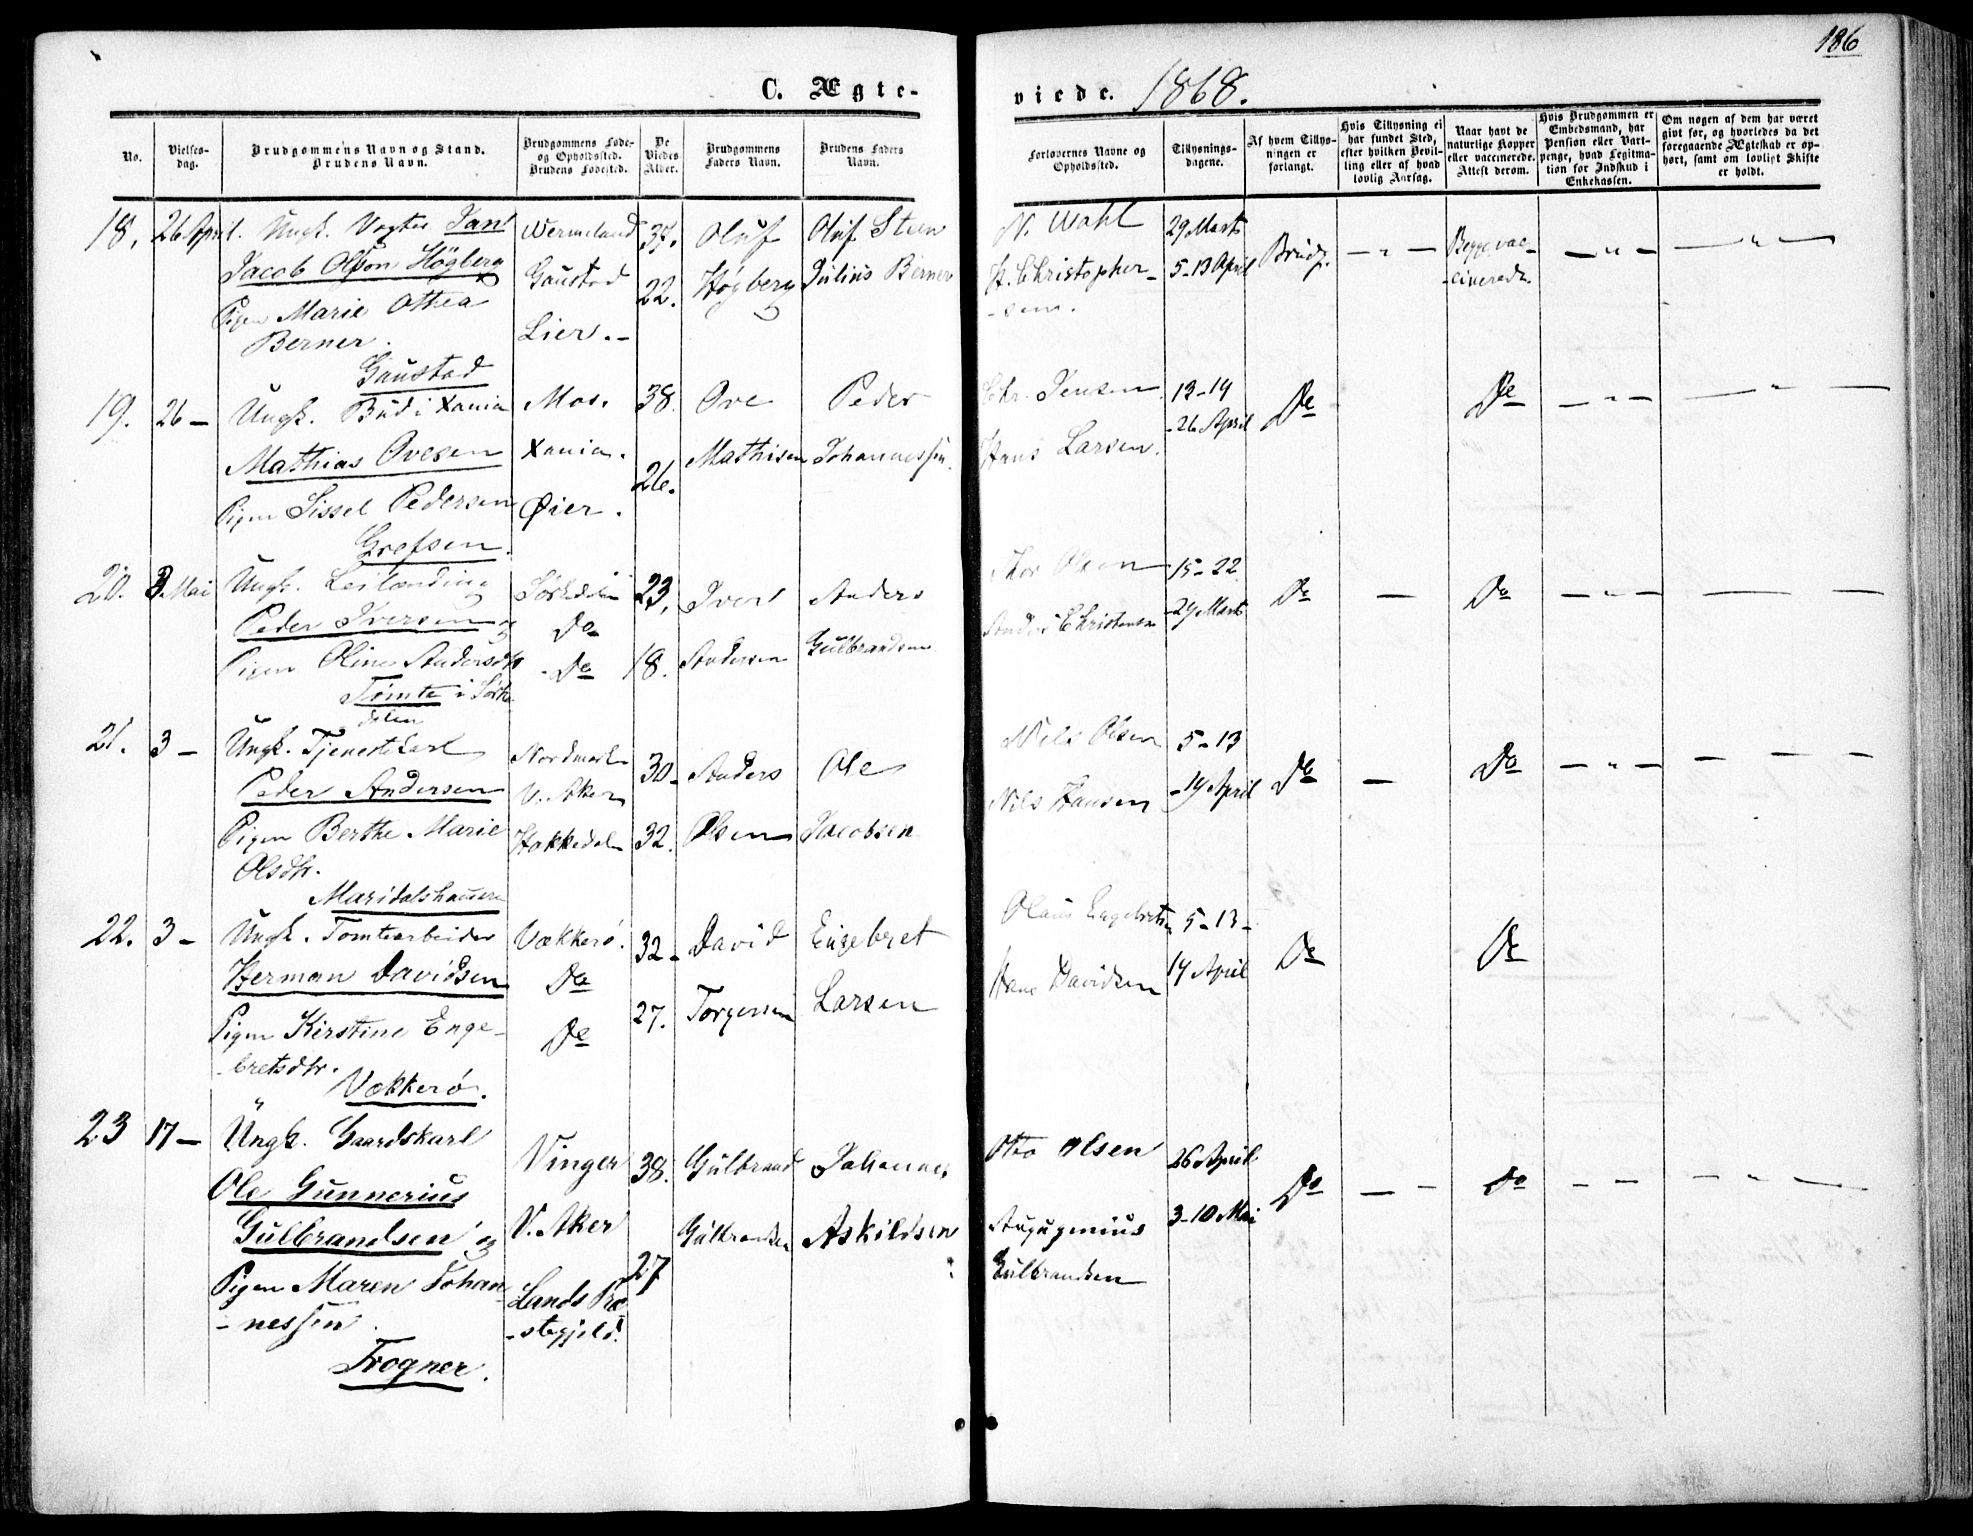 186
C. Ægte-
viede. 1868.
No.
Vielses-
dag.
Brudgommens Navn og Stand.
Brudens Navn.
Brudgommens Føde-
og Opholdssted.
Brudens Fødested.
De
Viedes
Alder.
Brudgommens
Faders Navn.
Brudens Faders
Navn.
Forlovernes Navne og
Opholdssted.
Tillysnings-
dagene.
Af hvem Tillys-
ningen er
forlangt.
Hvis Tillysning ei
har fundet Sted,
efter hvilken Bevil-
ling eller af hvad
lovlig Aarsag.
Naar havt de
naturlige Kopper
eller vaccinerede.
Attest derom.
Hvis Brudgommen er
Embedsmand, har
Pension eller Vart-
penge, hvad Legitma-
tion for Indskud i
Enkekassen.
Om nogen af dem har været
givt før, og hvorledes da det
foregaaende Ægteskab er op-
hørt, samt om lovligt Skifte
er holdt.
18. 26 April. Ungk. Vogter Jan
Jacob Olsson Högberg
Pigen Marie Othea
Berner.
Gaustad
Wermeland
Gaustad
Lier.-
37.
22.
Oluf
Høgberg
Oluf Steen
Julius Berner
N. Wahl
H. Christopher-
-sen.
29 Marts
5-13 April
Brudg.
- " -
Begge vac-
-cinerede
- " -
- " -
19. 26 - Ungk. Bud i Xania
Mathias Ovesen
Pigen Sissel Pedersen
Grefsen.
Mos.
Xania.
Øier.
38.
26.
Ove
Mathisen
Peder
Johannessen.
Chr. Jensen
Hans Larsen.
13-19
-26 April
Do
Do
- " -
- " -
20. 3 Mai Ungk. Leilænding
Peder Iversen og
Pigen Oline Andersdtr
Tømte i Sørke
dalen
Sørkedalen
Do
- Do
23,
18.
Iver
Andersen
Anders
Gulbrandsen
Thor Olsen
Anders Christensen
15-22
-29 Marts
Do
-
Do
- " -
- -
21. 3 - Ungk. Tjenestekarl
Peder Andersen
Pigen Berthe Marie
Olsdtr.
Maridalshammeren
Nordmark
V. Aker
Hakkedal
30-
32.
Anders
Olsen
Ole
Jacobsen
Nils Olsen
Nils Hansen
5-13
-19 April
Do
-
Do
- " -
- - -
22. 3 - Ungk. Tomtearbeider
Herman Davidsen
Pigen Kirstine Enge-
-bretsdtr.
Vækkerø.
Vækkerø.
Do
Do
32-
27.
David
Torgersen
Engebret
Larsen
Olaus Engebretsen
Hans Davidsen
5-13-
19 April
Do
Do
23 17 - Ungk. Gaardskarl
Ole Gunnerius
Gulbrandsen og
Pigen Maren Johan-
-nessen.
Frogner.
Vinger
V. Aker
Lands Præ
-stegjeld.
38.
27
Gulbrand
Gulbrandsen
Johannes
Askildsen
Otto Olsen
Gulbrandsen
26 April
3-10 Mai
Do
- -
Do
- -
- " -